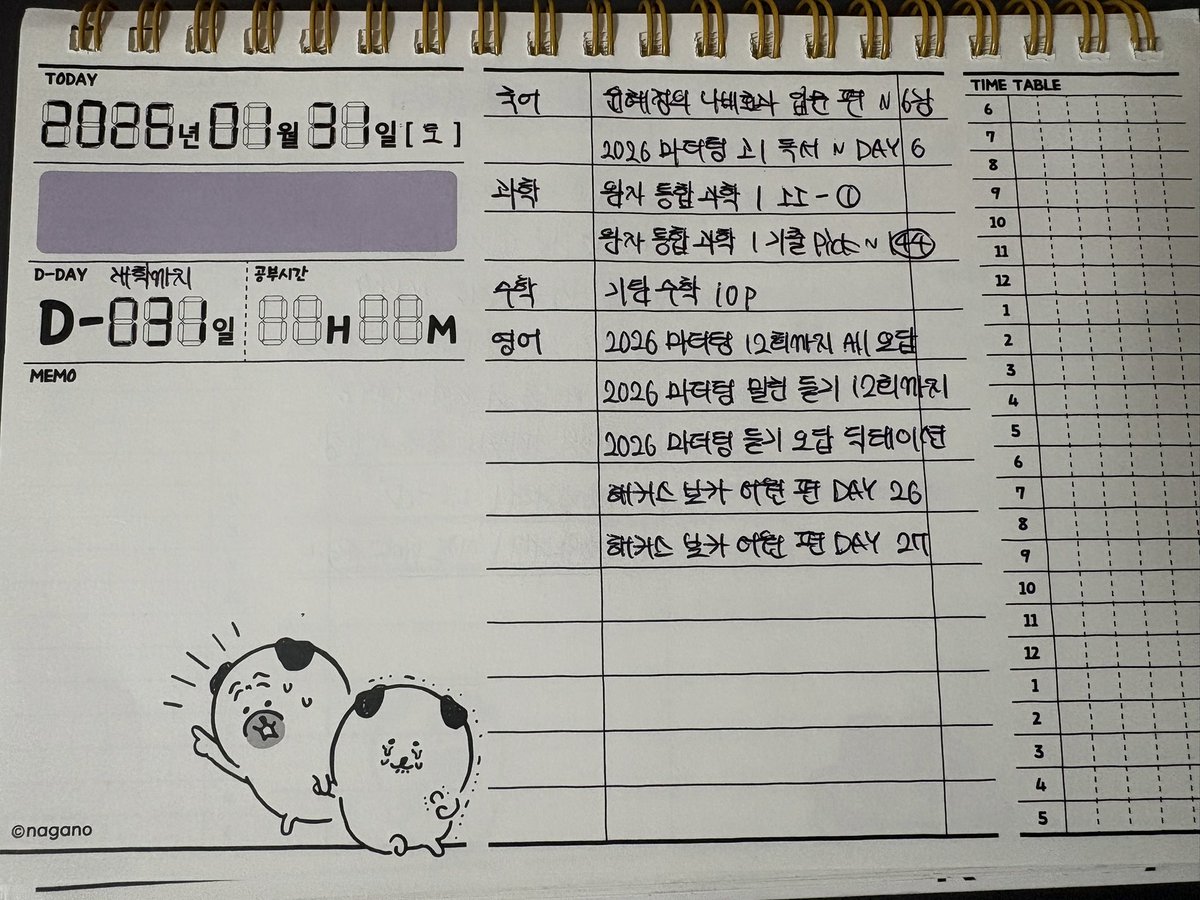 TODAY
2026년 01월 31일 [토]
D-DAY 개학까지
D-031일
공부시간
H M
MEMO
©nagano
국어 윤혜정의 나비효과 입문 편 ~ 6강
2026 마더텅 고1 독서 ~ DAY 6
과학 완자 통합 과학 1 II - ①
완자 통합 과학 1 기출 Pick ~ 144
수학 기탄 수학 10p
영어 2026 마더텅 12회까지 All 오답
2026 마더텅 밀린 듣기 12회까지
2026 마더텅 듣기 오답 딕테이션
해커스 보카 어원 편 DAY 26
해커스 보카 어원 편 DAY 27
TIME TABLE
6
7
8
9
10
11
12
1
2
3
4
5
6
7
8
9
10
11
12
1
2
3
4
5